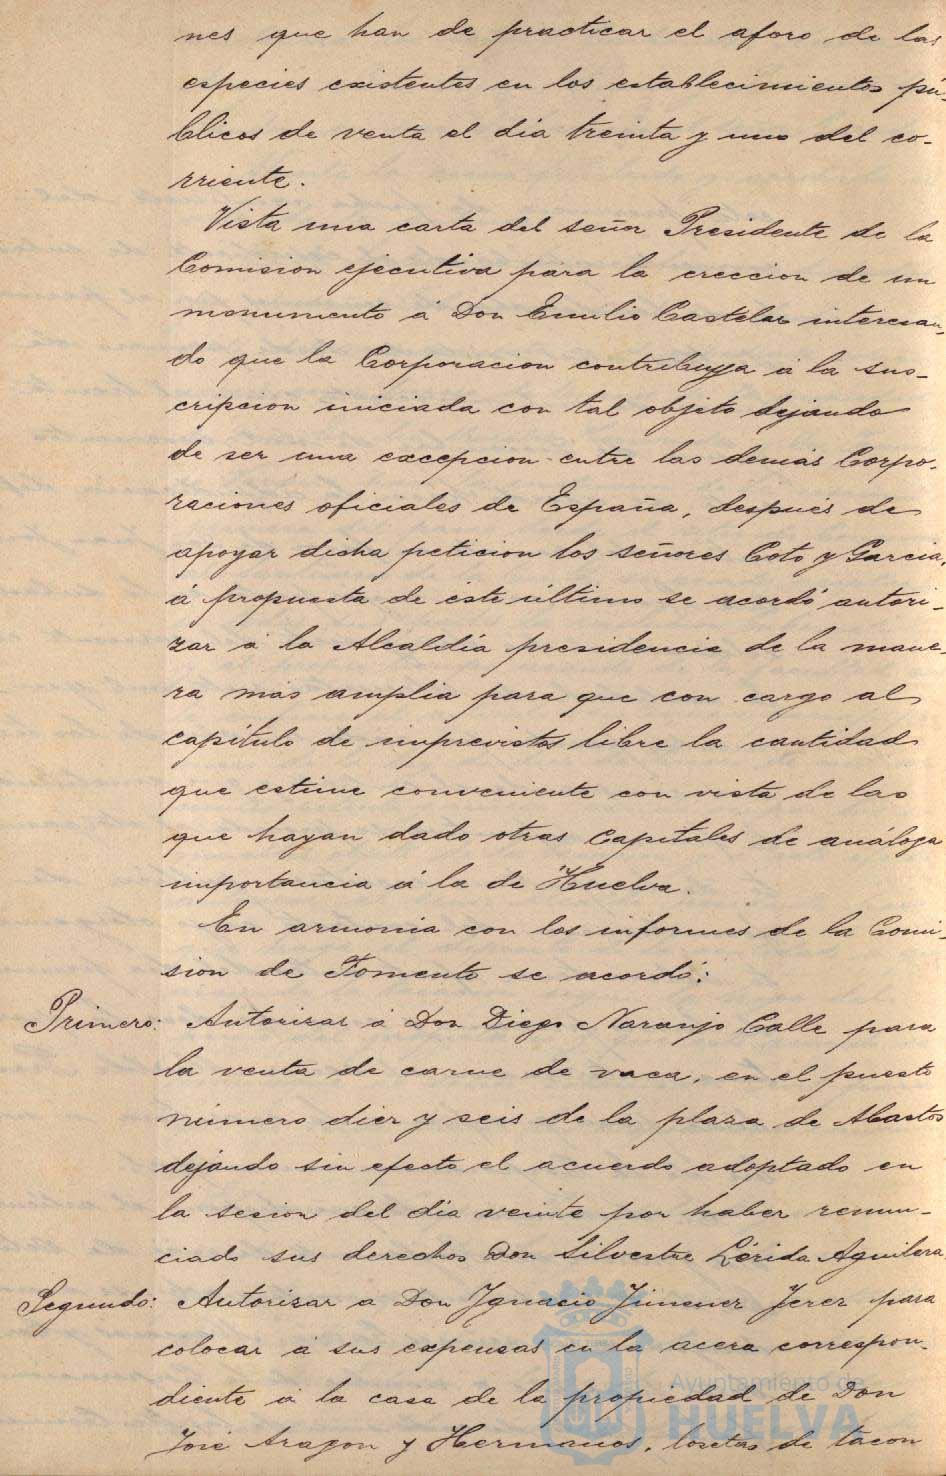 nes que han de practicar el aforo de las
especies existentes en los establecimientos pú-
blicos de venta el dia treinta y uno del co-
rriente.
Vista una carta del señor Presidente de la
Comision ejecutiva para la ereccion de un
monumento á Don Emilio Castelar interesan-
do que la Corporacion contribuyya á la sus-
cripcion iniciada con tal objeto dejando
de ser una excepcion entre las demás Corpo-
raciones oficiales de España, después de
apoyar dicha peticion los señores Coto y Garcia,
á propuesta de éste último se acordó autori-
zar á la Alcaldía presidencia de la mane-
ra más amplia para que con cargo al
capítulo de imprevistos libre la cantidad
que estime conveniente con vista de las
que hayan dado otras Capitales de análoga
importancia á la de Huelva.
En armonia con los informes de la Comi-
sion de Fomento se acordó:
Primero: Autorizar á Don Diego Naranjo Calle para
la venta de carne de vaca, en el puesto
número diez y seis de la plaza de Abastos
dejando sin efecto el acuerdo adoptado en
la sesion del día veinte por haber renun-
ciado sus derechos Don Silvestre Lérida Aguilera.
Segundo: Autorizar a Don Ignacio Jimenez Jerez para
colocar á sus expensas en la acera correspon-
diente á la casa de la propiedad de Don
José Aragon y Hermanos, losetas de tacon
Ayuntamiento de
HUELVA